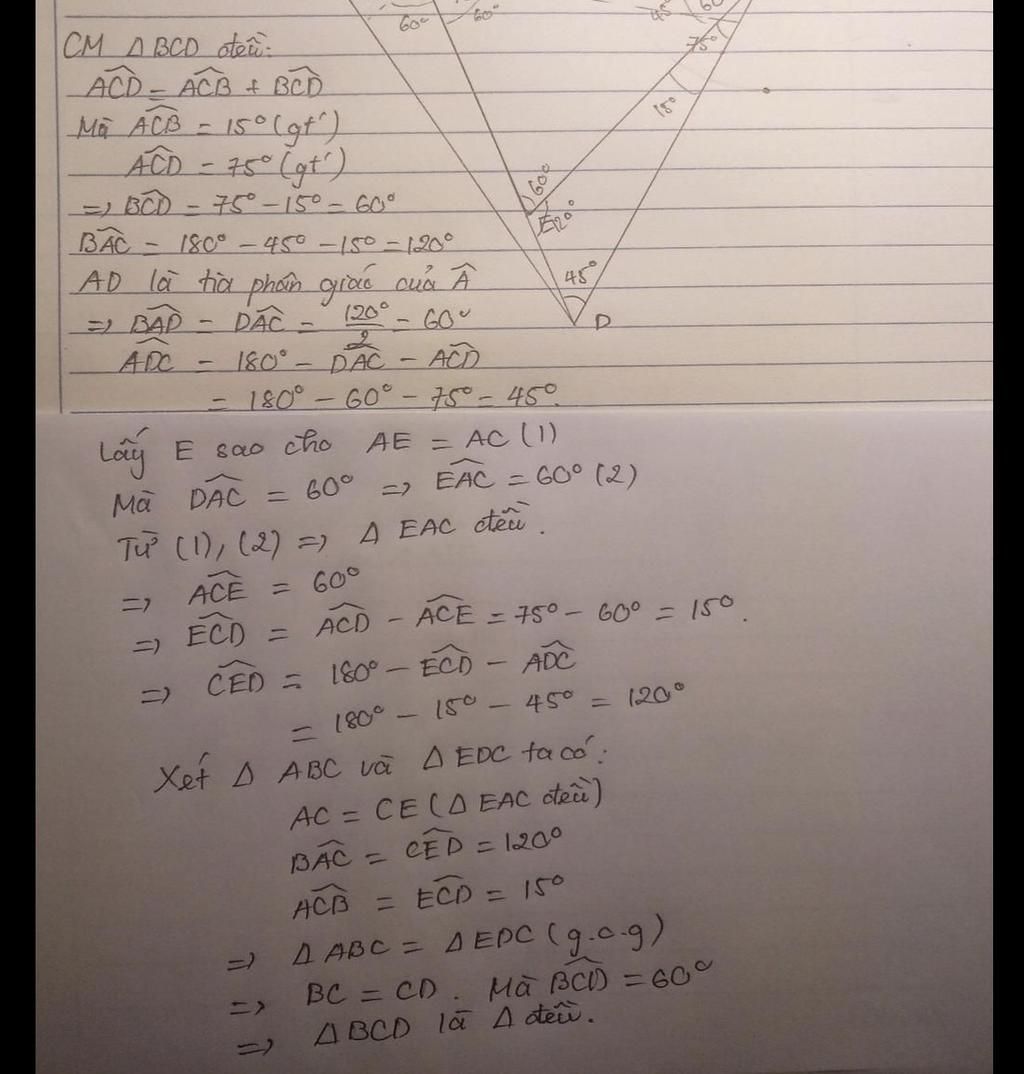 60° 60° 45° 60°
75°
15°
60°
E 120°
45°
D
CM Δ BCD đều:
ACD̂ = ACB̂ + BCD̂
Mà ACB̂ = 15° (gt)
ACD̂ = 75° (gt)
=> BCD̂ = 75° - 15° = 60°
BAĈ = 180° - 45° - 15° = 120°
AD là tia phân giác của Â
=> BAD̂ = DAĈ = 120°/2 = 60°
ADĈ = 180° - DAĈ - ACD̂
= 180° - 60° - 75° = 45°.
Lấy E sao cho AE = AC (1)
Mà DAĈ = 60° => EAĈ = 60° (2)
Từ (1), (2) => Δ EAC đều.
=> ACÊ = 60°
=> ECD̂ = ACD̂ - ACÊ = 75° - 60° = 15°.
=> CED̂ = 180° - ECD̂ - ADĈ
= 180° - 15° - 45° = 120°
Xét Δ ABC và Δ EDC ta có:
AC = CE (Δ EAC đều)
BAĈ = CED̂ = 120°
ACB̂ = ECD̂ = 15°
=> Δ ABC = Δ EDC (g.c.g)
=> BC = CD. Mà BCD̂ = 60°
=> Δ BCD là Δ đều.